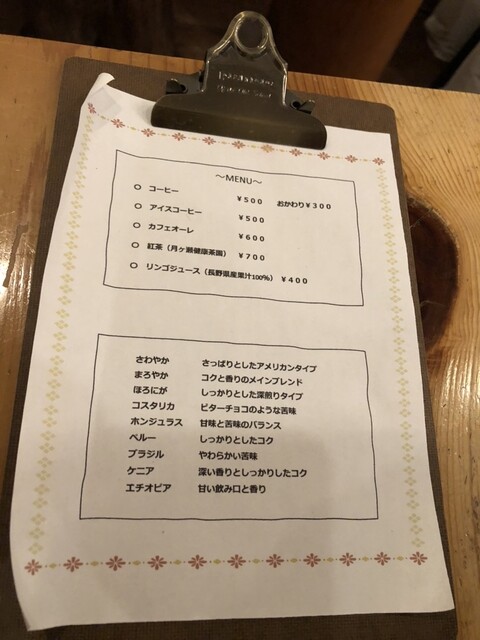 ～MENU～
○ コーヒー ￥５００ おかわり￥３００
○ アイスコーヒー ￥５００
○ カフェオーレ ￥６００
○ 紅茶（月ヶ瀬健康茶園） ￥７００
○ リンゴジュース（長野県産果汁100%） ￥４００
さわやか さっぱりとしたアメリカンタイプ
まろやか コクと香りのメインブレンド
ほろにが しっかりとした深煎りタイプ
コスタリカ ビターチョコのような苦味
ホンジュラス 甘味と苦味のバランス
ペルー しっかりとしたコク
ブラジル やわらかい苦味
ケニア 深い香りとしっかりしたコク
エチオピア 甘い飲み口と香り